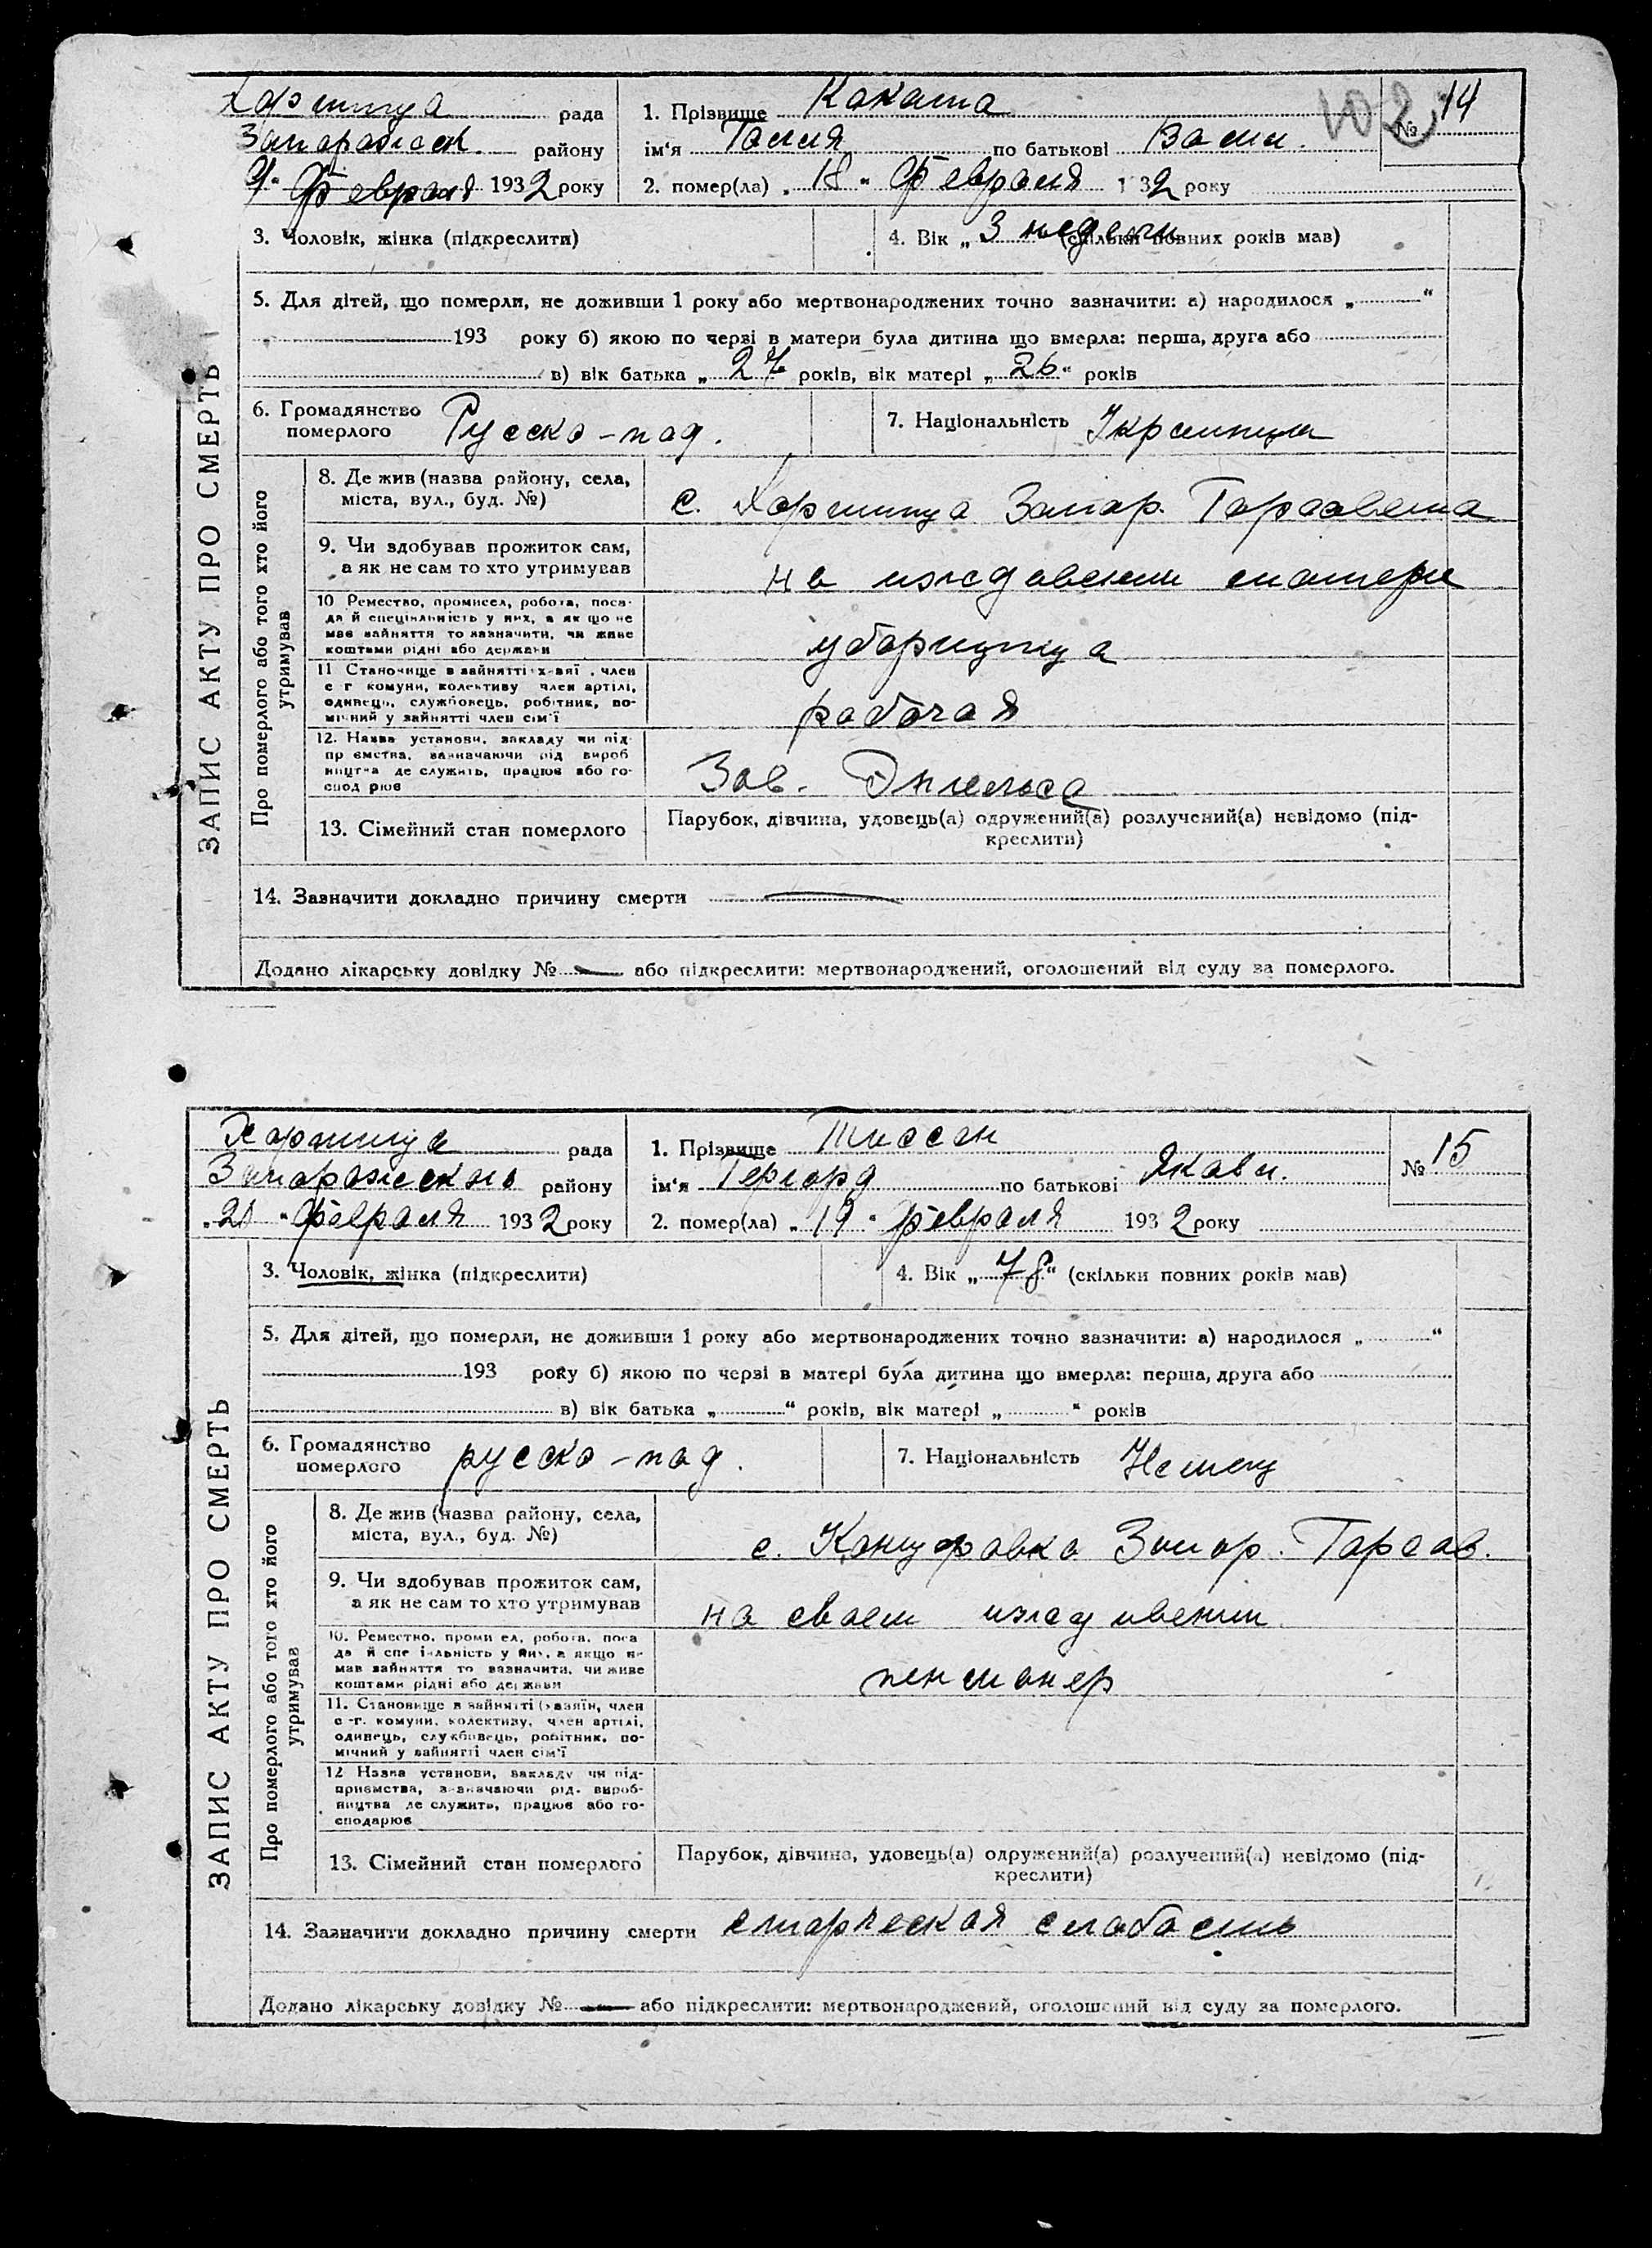 102
Хортица рада
1. Прізвище Каката
№ 14
Запорожск. району
ім'я Тасия по батькові Васил.
Февраля 1932 року
2. помер(ла) „18" Февраля 1932 року
ЗАПИС АКТУ ПРО СМЕРТЬ
3. Чоловік, жінка (підкреслити)
4. Вік „3 недели (скільки повних років мав)
5. Для дітей, що померли, не доживши 1 року або мертвонароджених точно зазначити: а) народилося „ "
193 року б) якою по черзі в матери була дитина що вмерла: перша, друга або
в) вік батька „27 років, вік матері „26" років
6. Громадянство померлого Русско-под.
7. Національність Украинка
Про померлого або того хто його утримував
8. Де жив (назва району, села,
міста, вул., буд. №)
с. Хортица Запор. Горсовета
9. Чи здобував прожиток сам,
а як не сам то хто утримував
на иждевении матери
10 Ремество, промисел, робота, поса-
да й спеціяльність у них, а як що не
має зайняття то зазначити, чи живе
коштами рідні або держави
уборщица
11 Становище в зайнятті х-зяї , член
с г комуни, колективу член артілі,
одинець, службовець, робітник, по-
мічний у зайнятті член сім'ї
рабочая
12. Назва установи, закладу чи під-
пр ємства, зазначаючи рід вироб
ництва де служить, працює або го-
спод рює
Зав. Энгельса
13. Сімейний стан померлого
Парубок, дівчина, удовець(а) одружений(а) розлучений(а) невідомо (під-
креслити)
14. Зазначити докладно причину смерти
Додано лікарську довідку № або підкреслити: мертвонароджений, оголошений від суду за померлого.
Хортица рада
1. Прізвище Тиссен
№ 15
Запорожского району
ім'я Гергард по батькові Яковл.
„20" Февраля 1932 року
2. помер(ла) „19" Февраля 1932 року
ЗАПИС АКТУ ПРО СМЕРТЬ
3. Чоловік, жінка (підкреслити)
4. Вік „78" (скільки повних років мав)
5. Для дітей, що померли, не доживши 1 року або мертвонароджених точно зазначити: а) народилося „ "
193 року б) якою по черзі в матері була дитина що вмерла: перша, друга або
в) вік батька „ " років, вік матері „ " років
6. Громадянство померлого русско-под.
7. Національність Немец
Про померлого або того хто його утримував
8. Де жив (назва району, села,
міста, вул., буд. №)
с. Канцеровка Запор. Горсов.
9. Чи здобував прожиток сам,
а як не сам то хто утримував
на своем иждивении
10. Ремество, проми ел, робота, поса
да й спе іяльність у них, а якщо не
мав зайняття то зазначити, чи живе
коштами рідні або держави
пенсионер
11. Становище в зайнятті (хазяїн, член
с-г. комуни, колективу, член артілі,
одинець, службовець, робітник, по-
мічний у зайнятті член сім'ї
12 Назва установи, закладу чи під-
приємства, зазначаючи рід. вироб-
ництва де служить, працює або го-
сподарює
13. Сімейний стан померлого
Парубок, дівчина, удовець(а) одружений(а) розлучений(а) невідомо (під-
креслити)
14. Зазначити докладно причину смерти старческая слабость
Додано лікарську довідку № або підкреслити: мертвонароджений, оголошений від суду за померлого.